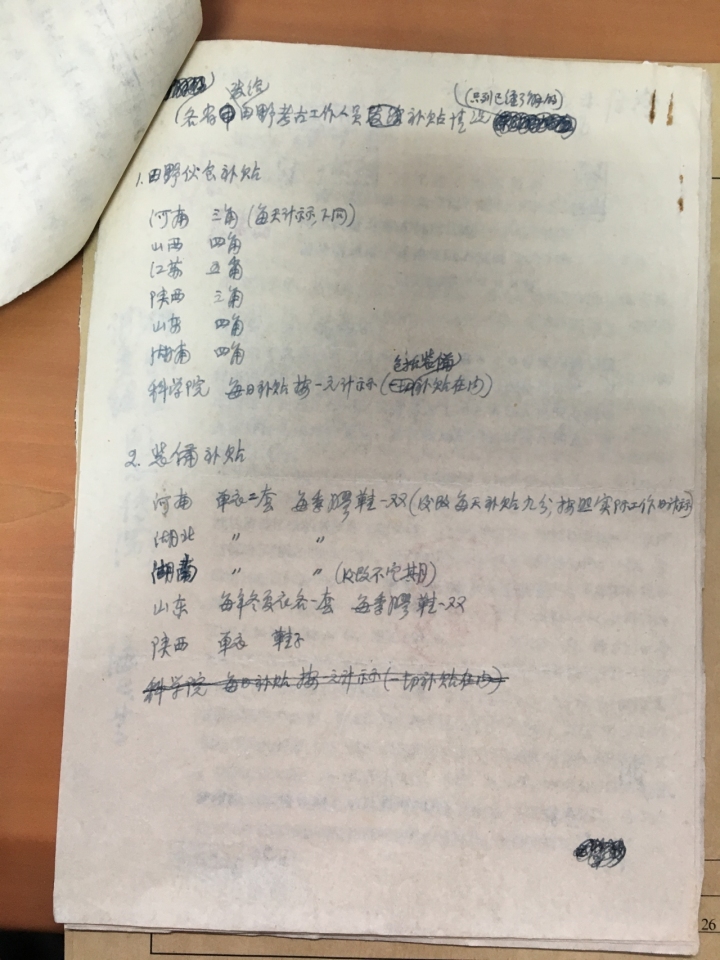 (只到已经了解的)
各省田野考古工作人员补贴情况
1.田野伙食补贴
河南 三角(每天计示不同)
山西 四角
江苏 五角
陕西 三角
山东 四角
湖南 四角
包括装备
科学院 每日补贴按一元计示(一切补贴在内)
2.装备补贴
河南 单衣二套 每季膠鞋一双(后改每天补贴九分,按照实际工作日计示)
湖北 〃 〃
湖南 〃 〃(后改不定期)
山东 每年冬夏衣各一套 每季膠鞋一双
陕西 单衣 鞋子
科学院 每日补贴按一元计示(一切补贴在内)
26